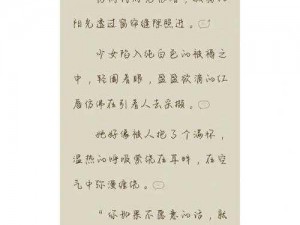 阳光透过窗帘缝隙照进。
少女陷入纯白色的被褥之
中，轻阖着眼，盈盈欲滴的红
唇仿佛在引着人去采撷。
她好像被人抱了个满怀，
温热的呼吸萦绕在耳畔，在空
气中弥漫缠绕。
“你如果不愿意的话，朕